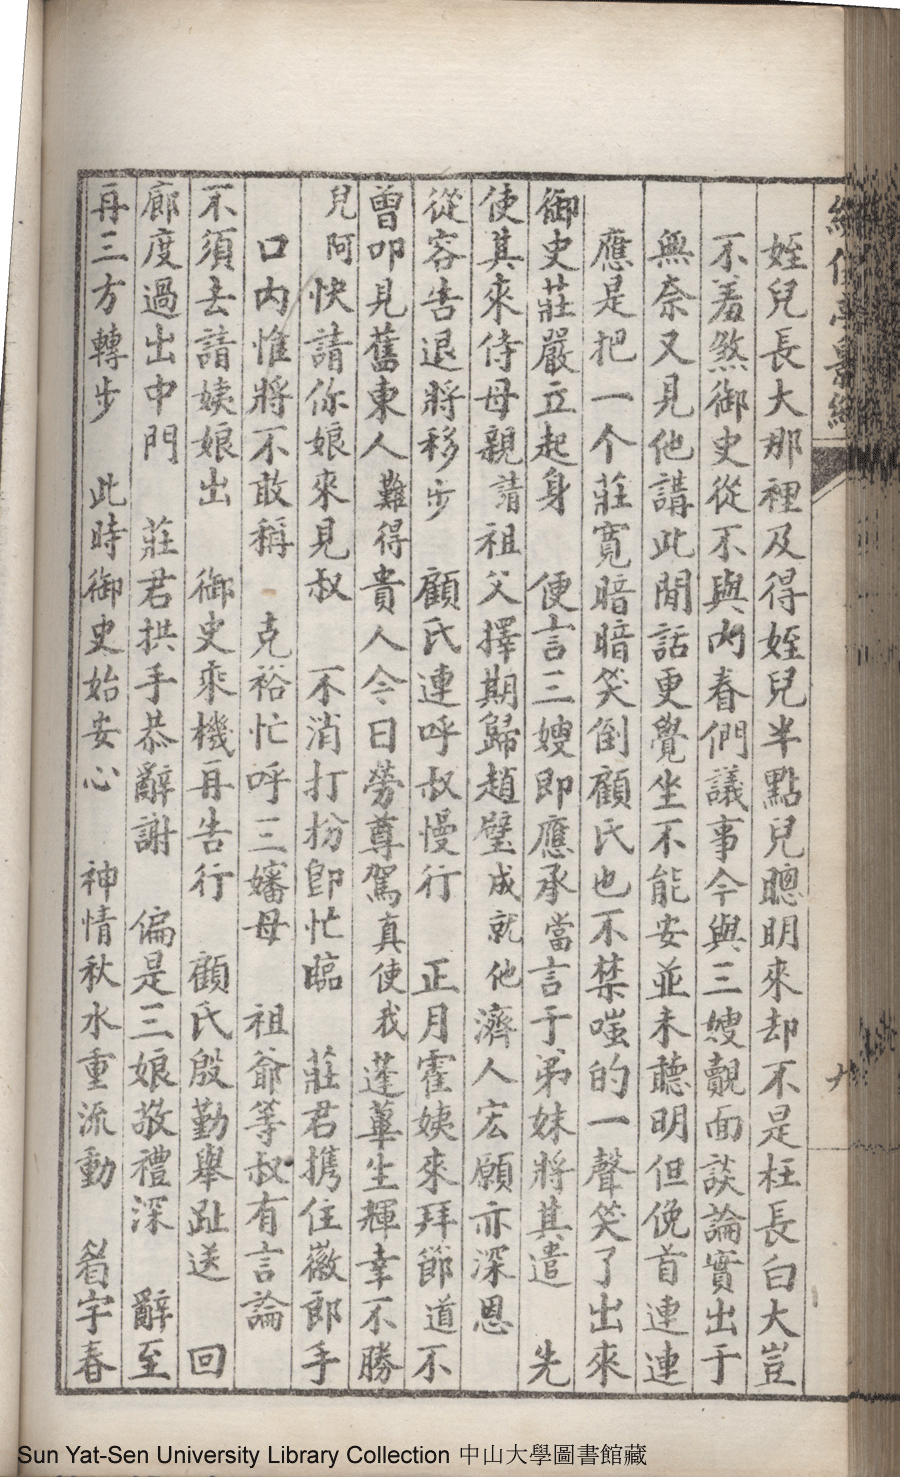 姪兒長大那裡及得姪兒半點兒聰明來却不是枉長白大豈
不羞煞御史從不與内春們議事今與三嫂覿面談論實出于
無奈又見他講此閒話更覺坐不能安並未聽明但俛首連連
應是把一个莊寬暗暗笑倒顧氏也不禁嗤的一聲笑了出來
御史莊嚴立起身 便言三嫂即應承當言于弟妹將其遣 先
使其來侍母親請祖父擇期歸趙璧成就他濟人宏願亦深恩
從容告退將移步 顧氏連呼叔慢行 正月霍姨來拜節道不
曾叩見舊東人難得貴人今日勞尊駕真使我蓬蓽生輝幸不勝
兒阿快請你娘來見叔 不消打扮卽忙臨 莊君携住薇郎手
口内惟將不敢稱 克裕忙呼三嬸母 祖爺等叔有言論
不須去請姨娘出 御史乘機再告行 顧氏殷勤舉趾送 回
廊度過出中門 莊君拱手恭辭謝 偏是三娘敬禮深 辭至
再三方轉步 此時御史始安心 神情秋水重流動 眉宇春
Sun Yat-Sen University Library Collection 中山大學圖書館藏